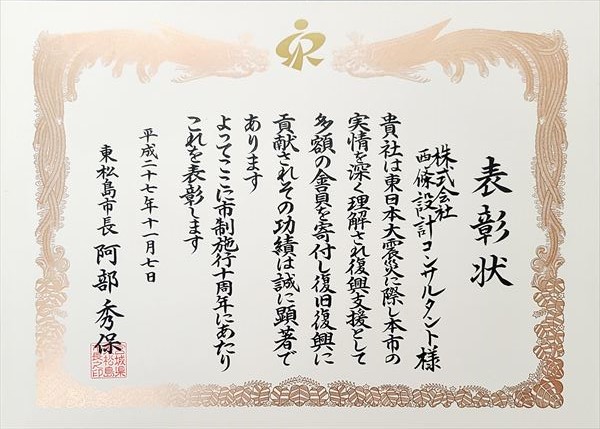 表彰状
株式会社
西條設計コンサルタント様
貴社は東日本大震災に際し本市の
実情を深く理解され復興支援として
多額の金員を寄付し復旧復興に
貢献されその功績は誠に顕著で
あります
よってここに市制施行十周年にあたり
これを表彰します
平成二十七年十一月七日
東松島市長 阿部秀保